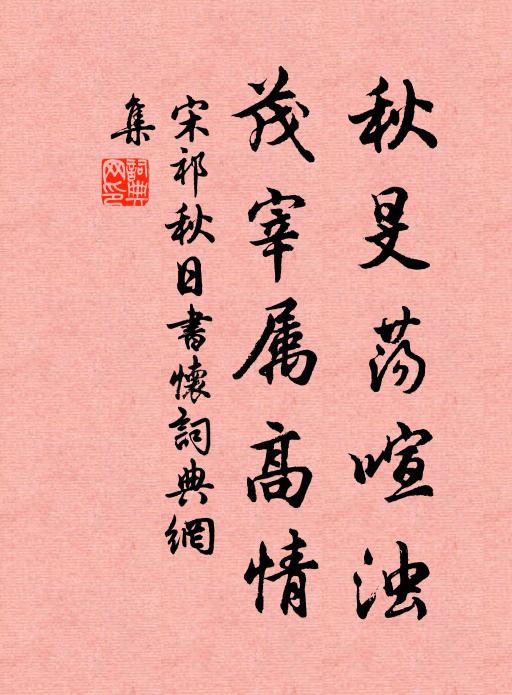 秋旻荡喧浊
茂宰属高情
宋祁秋日書懷詞典網
集
詞典网印